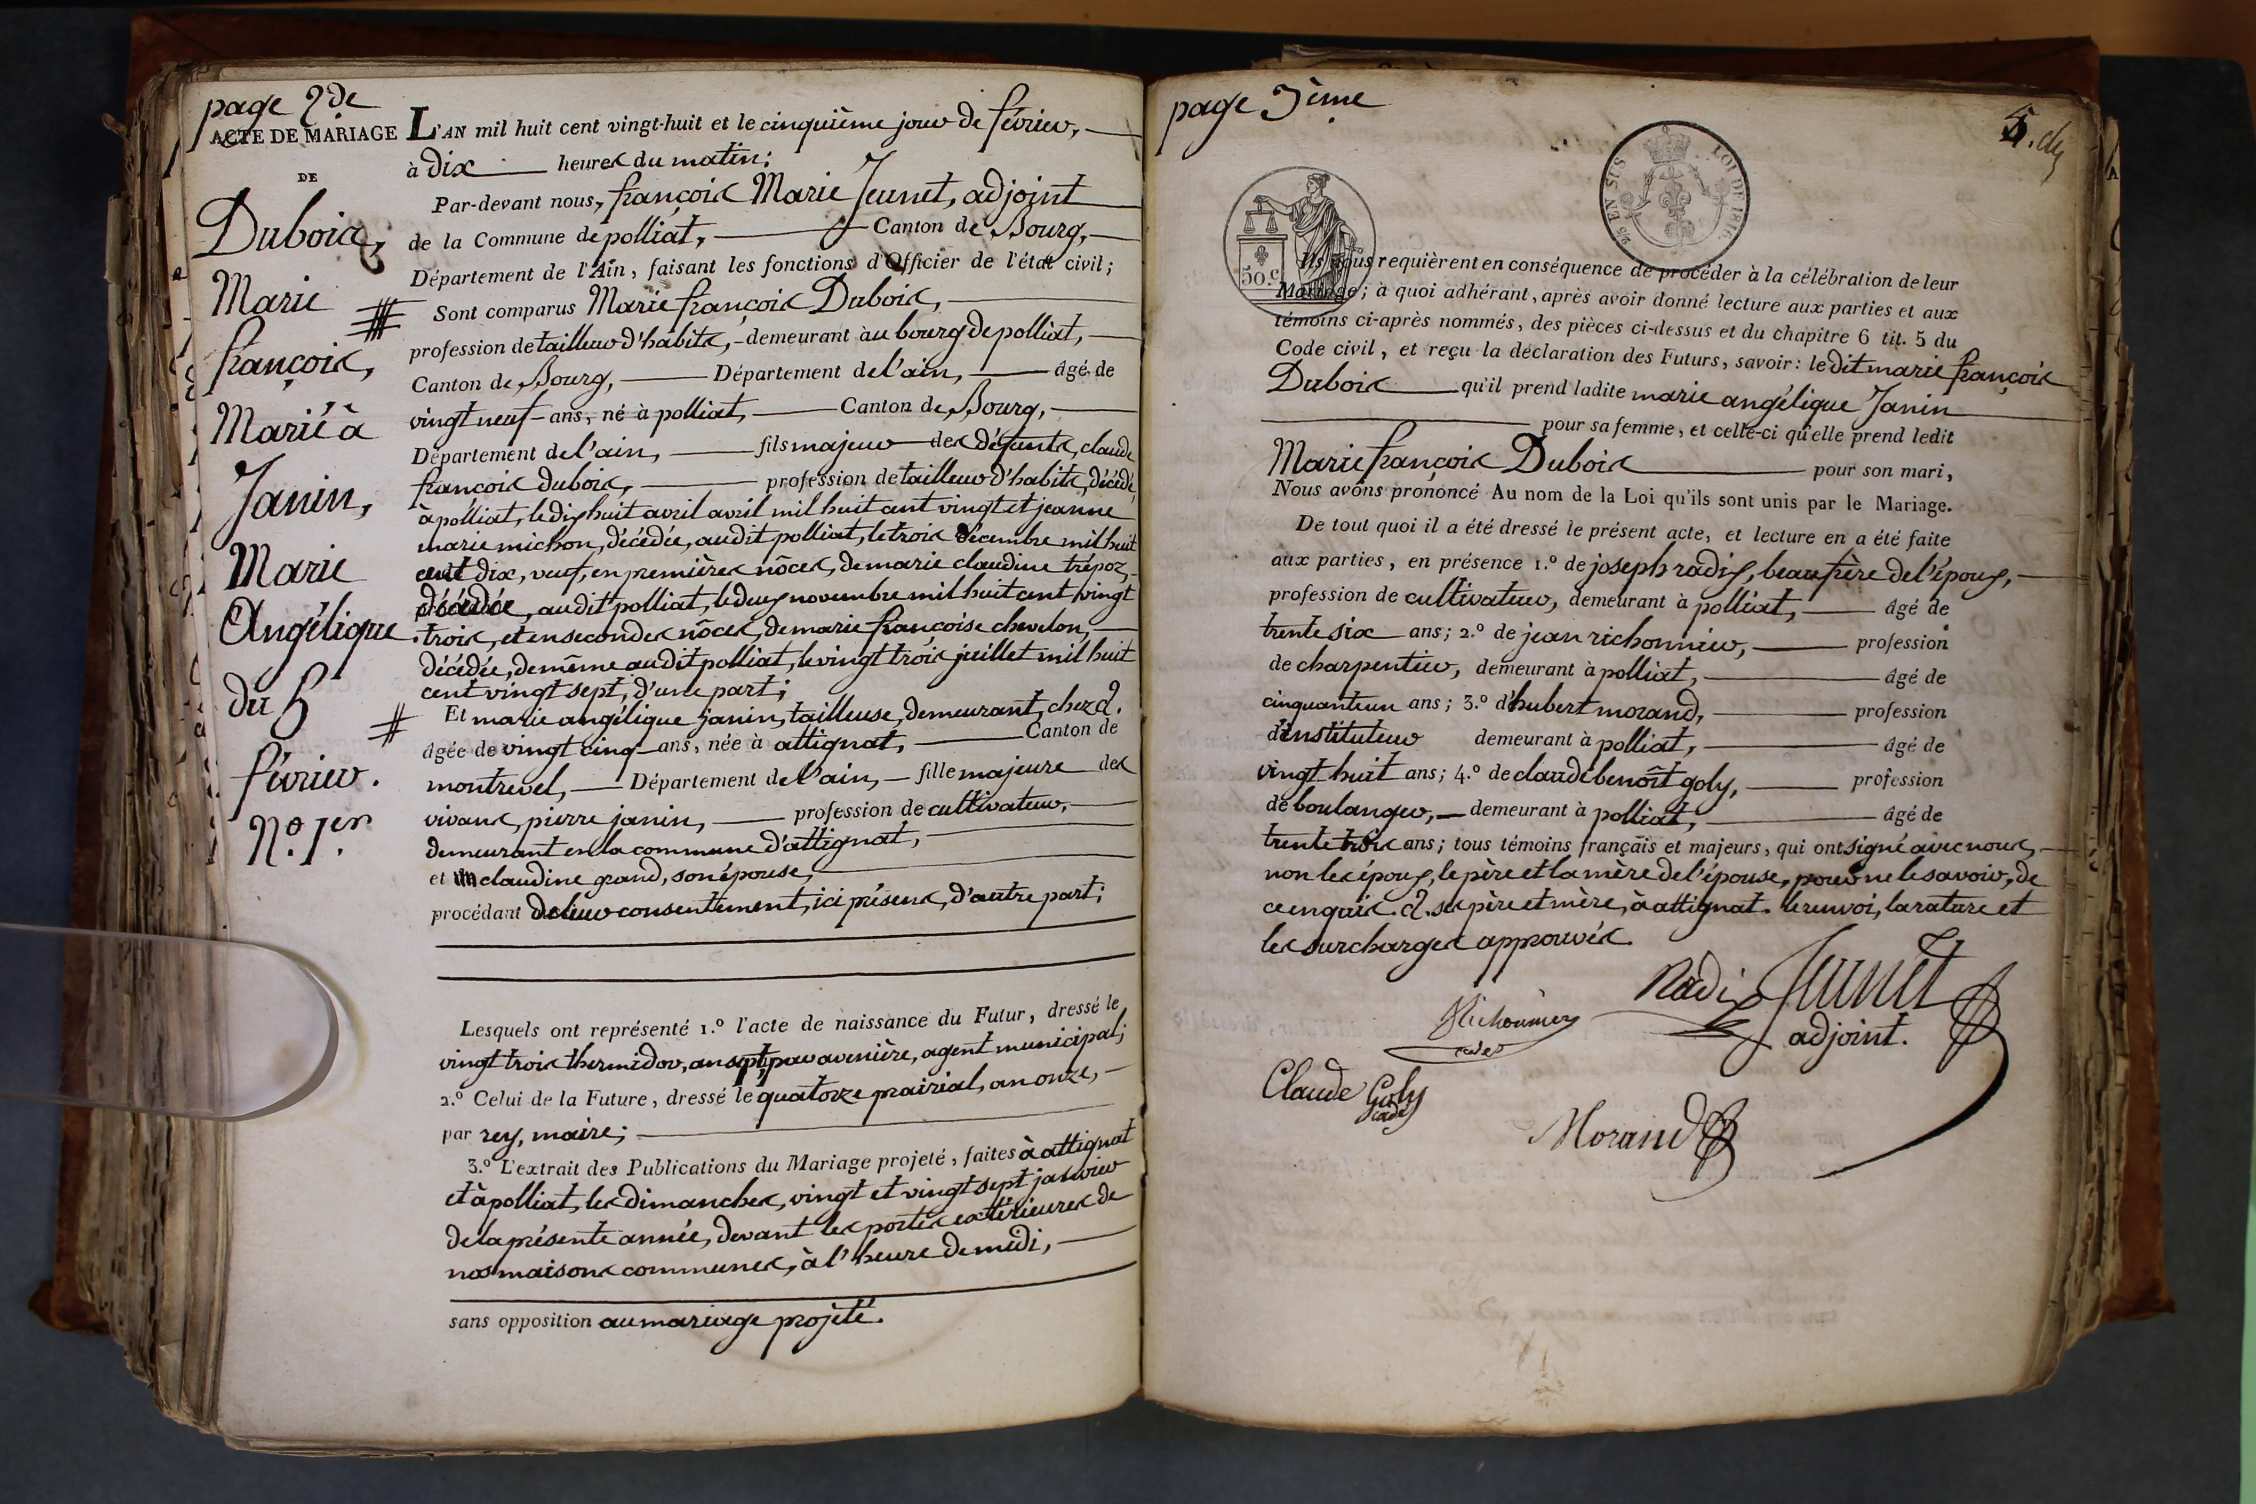 page 2de
ACTE DE MARIAGE
DE
Dubois,
Marie
françois,
Marié à
Janin,
Marie
Angélique.
du 5
février.
N.º 1er.
L'AN mil huit cent vingt-huit et le cinquième jour de février,
à dix heures du matin;
Par-devant nous, françois Marie Jeunet, adjoint
de la Commune de polliat, Canton de Bourg,
Département de l'Ain, faisant les fonctions d'Officier de l'état civil;
Sont comparus Marie françois Dubois,
profession de tailleur d'habits, demeurant au bourg de polliat,
Canton de Bourg, Département de l'ain, âgé de
vingt neuf ans, né à polliat, Canton de Bourg,
Département de l'ain, fils majeur des défunts, claude
françois dubois, profession de tailleur d'habits, décédé,
à polliat, le dix huit avril avril mil huit cent vingt et jeanne
marie michon, décédée, audit polliat, le trois décembre mil huit
cent dix, veuf, en premières nôces, de marie claudine trépoz,
décédée, audit polliat, le deux novembre mil huit cent vingt
trois, et en secondes nôces, de marie françoise chevelon,
décédée, de même audit polliat, le vingt trois juillet mil huit
cent vingt sept, d'une part;
Et marie angélique janin, tailleuse, demeurant, chez
âgée de vingt cinq ans, née à attignat, Canton de
montrevel, Département de l'ain, fille majeure des
vivans, pierre janin, profession de cultivateur,
demeurant en la commune d'attignat,
et claudine grand, son épouse,
procédant de leur consentement, ici présens, d'autre part;
Lesquels ont représenté 1.º l'acte de naissance du Futur, dressé le
vingt trois thermidor, an sept, par avenière, agent municipal;
2.º Celui de la Future, dressé le quatorze prairial, an onze,
par rey, maire;
3.º L'extrait des Publications du Mariage projeté, faites à attignat
et à polliat, les dimanches, vingt et vingt sept janvier
de la présente année, devant les portes extérieures de
nos maisons communes, à l'heure de midi,
sans opposition au mariage projeté.
page 3ème
5.
25 EN SUS
LOI DE 1816.
50.c
Ils nous requièrent en conséquence de procéder à la célébration de leur
Mariage; à quoi adhérant, après avoir donné lecture aux parties et aux
témoins ci-après nommés, des pièces ci-dessus et du chapitre 6 tit. 5 du
Code civil, et reçu la déclaration des Futurs, savoir: le dit marie françois
Dubois qu'il prend ladite marie angélique Janin
pour sa femme, et celle-ci qu'elle prend ledit
Marie françois Dubois pour son mari,
Nous avons prononcé Au nom de la Loi qu'ils sont unis par le Mariage.
De tout quoi il a été dressé le présent acte, et lecture en a été faite
aux parties, en présence 1.º de joseph radix, beaufrère de l'époux,
profession de cultivateur, demeurant à polliat, âgé de
trente six ans; 2.º de jean richonnier, profession
de charpentier, demeurant à polliat, âgé de
cinquante un ans; 3.º d'hubert morand, profession
d'instituteur demeurant à polliat, âgé de
vingt huit ans; 4.º de claude benoît goly, profession
de boulanger, demeurant à polliat, âgé de
trente trois ans; tous témoins français et majeurs, qui ont signé avec nous,
non les époux, le père et la mère de l'épouse, pour ne le savoir, de
ce enquis. ses père et mère, à attignat. le renvoi, la rature et
les surcharges approuvés.
Radix Jeunet
adjoint.
Richonnier
Claude Goly
cadet
Morand